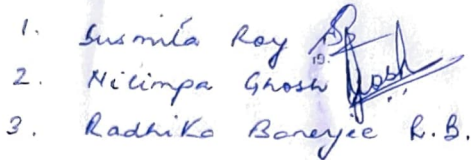 1. Susmita Roy
2. Nilimpa Ghosh Ghosh
3. Radhika Banerjee R.B.